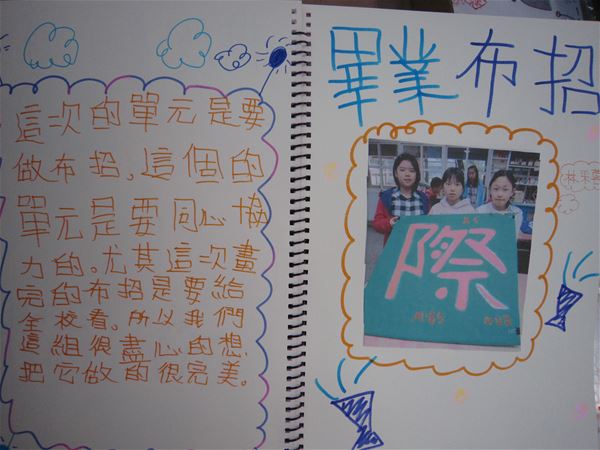 這次的單元是要
做布招。這個的
單元是要同心協
力的。尤其這次畫
完的布招是要給
全校看。所以我們
這組很盡心的想
把它做的很完美。
畢業布招
際